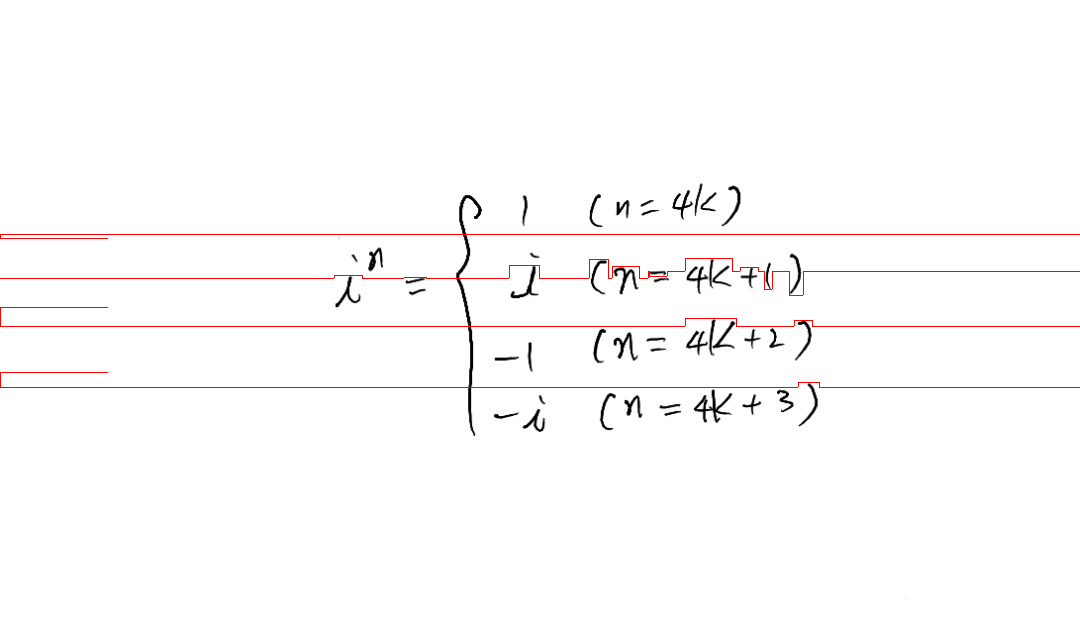 1 (n = 4k)
iⁿ = { i (n = 4k + 1)
-1 (n = 4k + 2)
-i (n = 4k + 3)